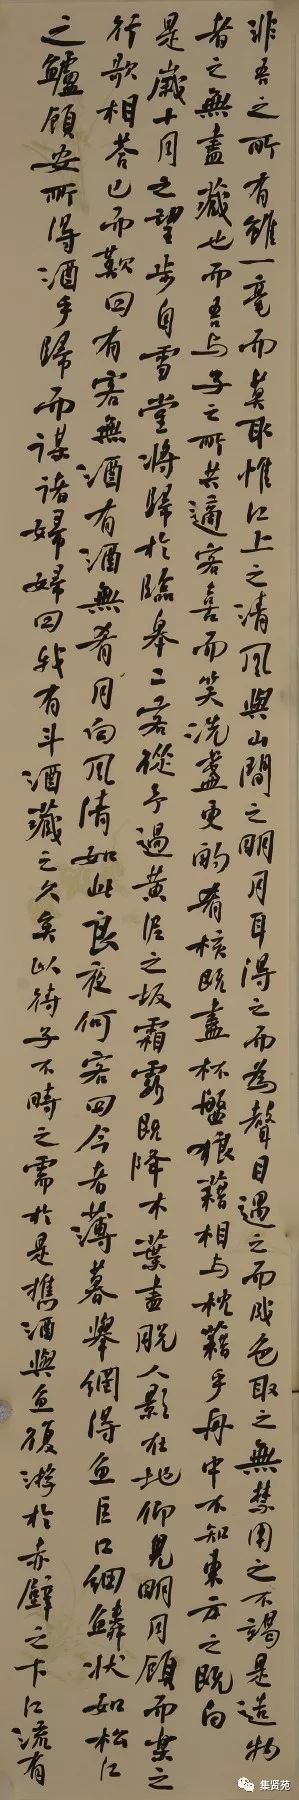 非吾之所有雖一毫而莫取惟江上之清風與山間之明月耳得之而為聲目遇之而成色取之無禁用之不竭是造物
者之無盡藏也而吾与子之所共適客喜而笑洗盞更酌肴核既盡杯盤狼藉相与枕藉乎舟中不知東方之既白
是歲十月之望步自雪堂將歸於臨皋二客從予過黃泥之坂霜露既降木葉盡脫人影在地仰見明月顧而樂之
行歌相答已而歎曰有客無酒有酒無肴月白風清如此良夜何客曰今者薄暮舉網得魚巨口細鱗狀如松江
之鱸顧安所得酒乎歸而謀諸婦婦曰我有斗酒藏之久矣以待子不時之需於是攜酒與魚復游於赤壁之下江流有
集贤苑